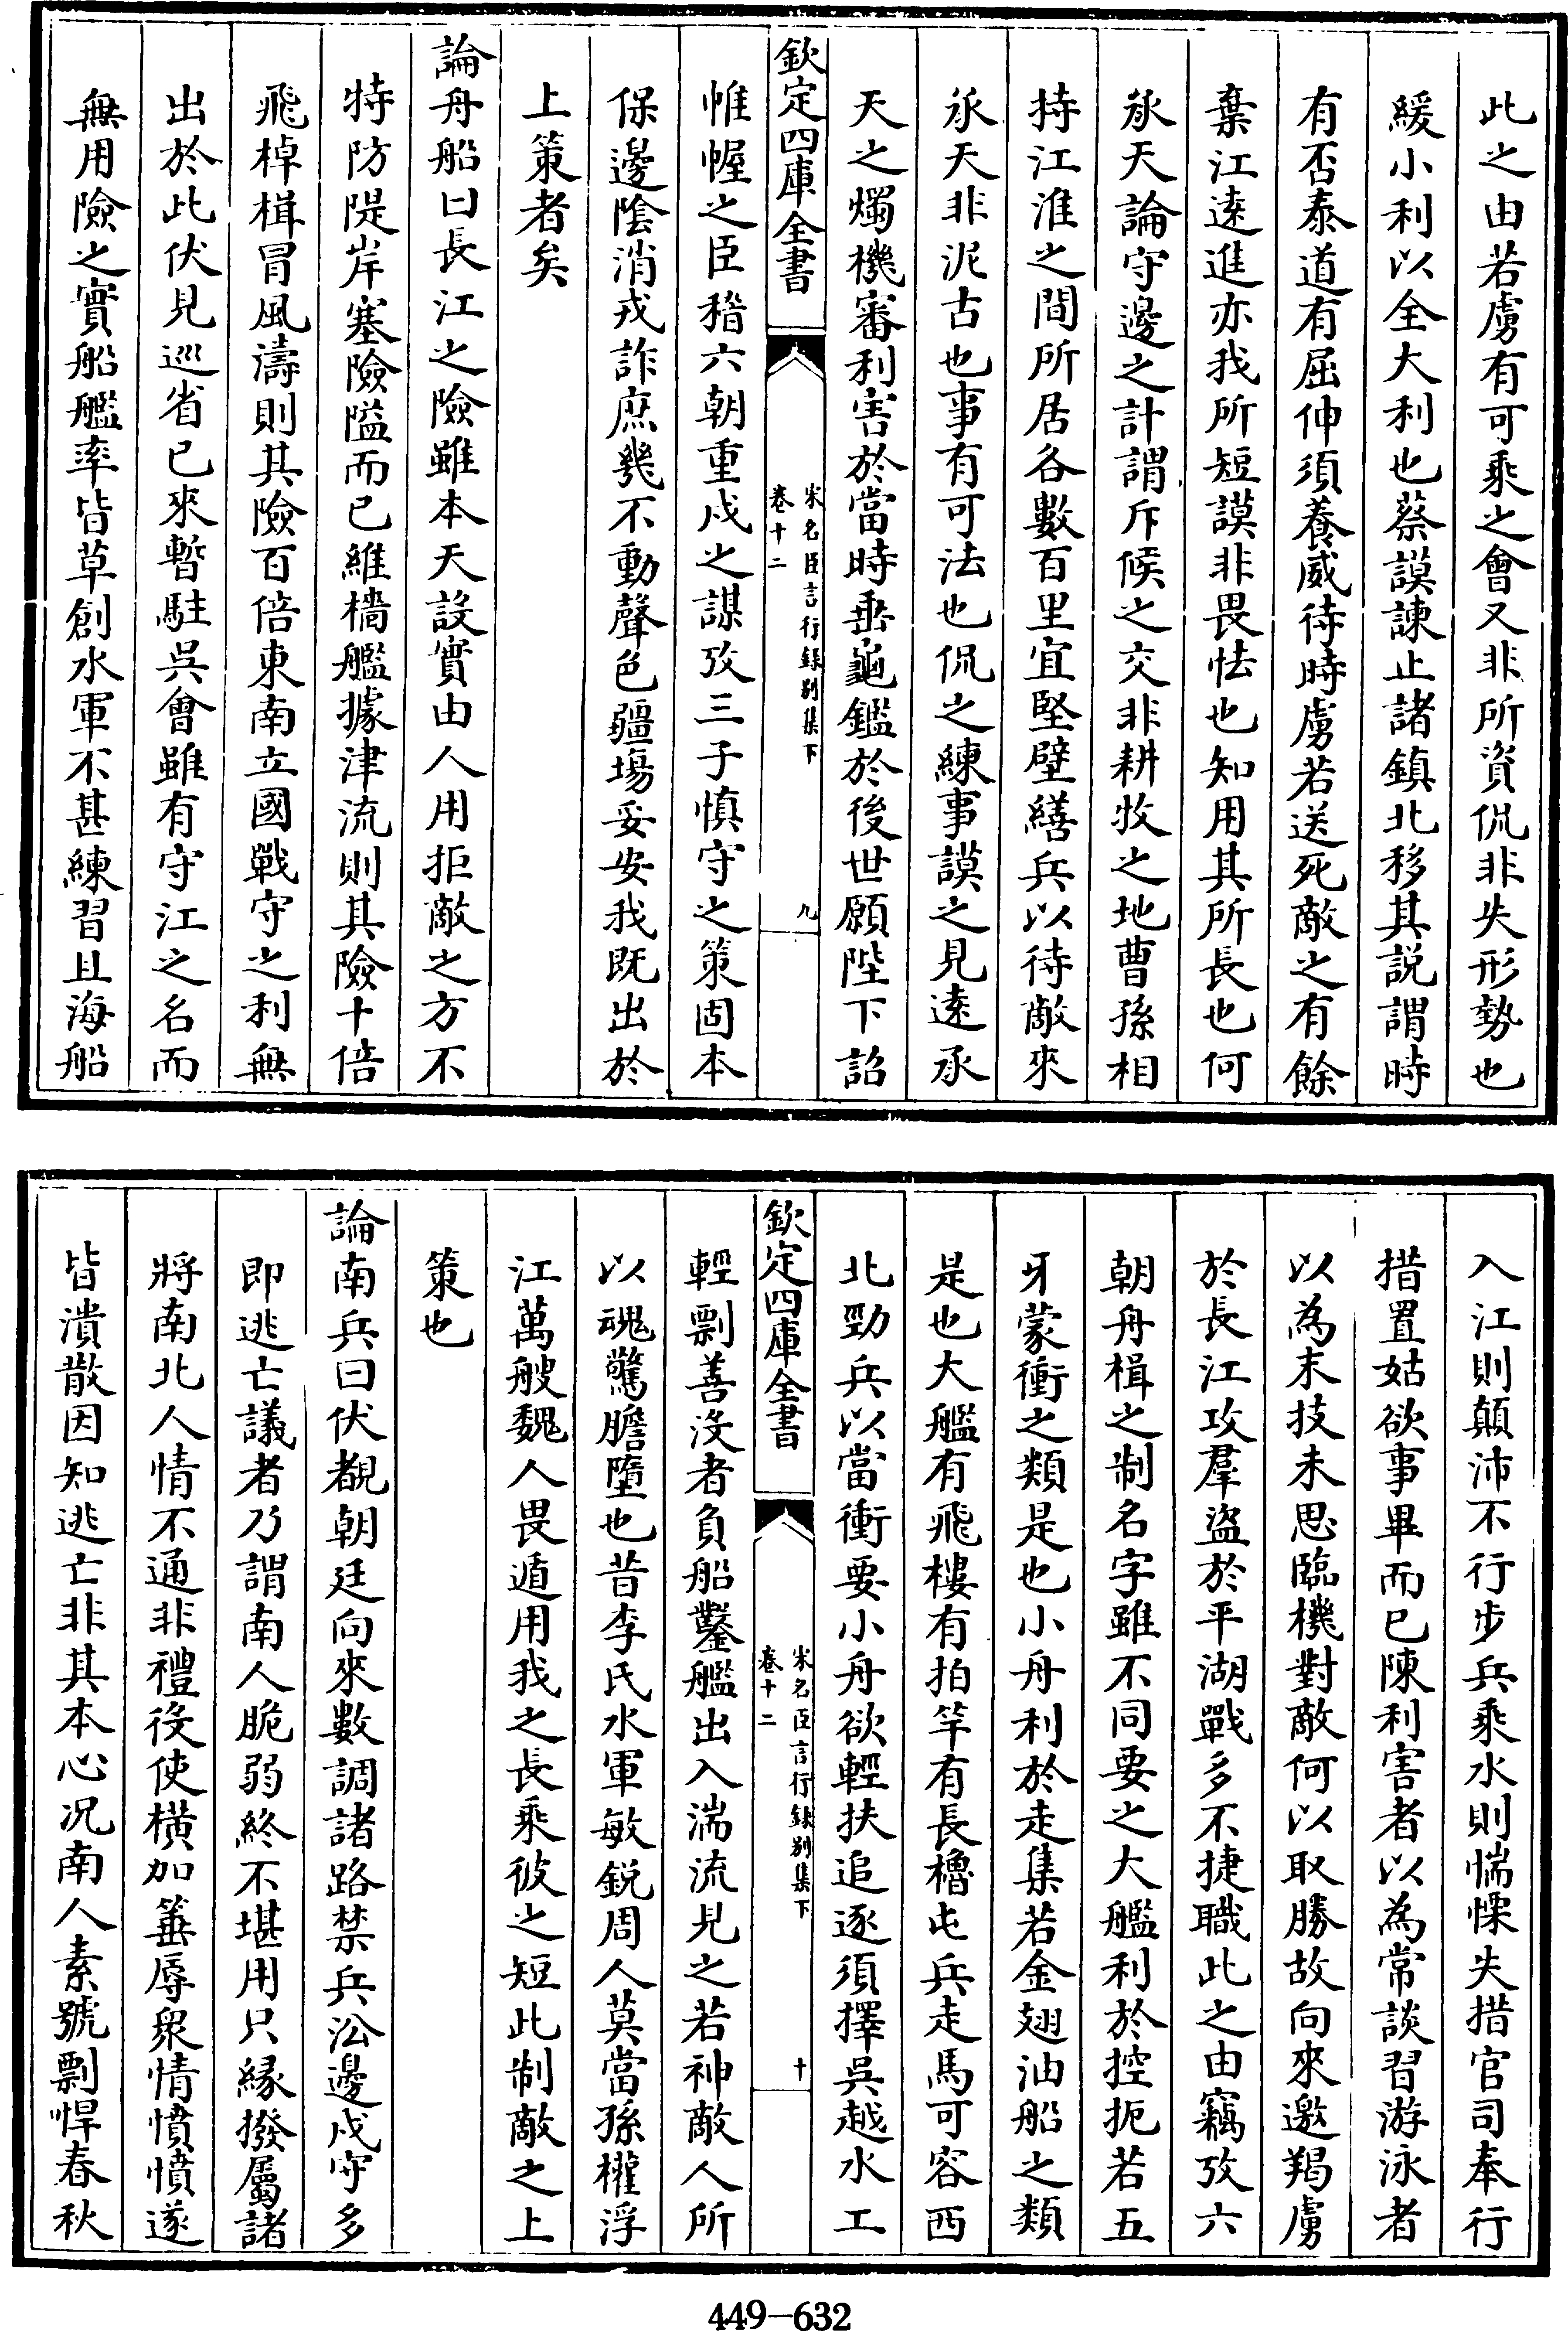 此之由若虜有可乘之會又非所資侃非失形勢也
緩小利以全大利也蔡謨諫止諸鎮北移其説謂時
有否泰道有屈伸須養威待時虜若送死敵之有餘
棄江逺進亦我所短謨非畏怯也知用其所長也何
承天論守邊之計謂斥候之交非耕牧之地曹孫相
持江淮之間所居各數百里宜堅壁繕兵以待敵來
承天非泥古也事有可法也侃之練事謨之見逺承
天之燭機審利害於當時垂龜鑑於後世願陛下詔
欽定四庫全書
宋名臣言行録别集下
卷十二
九
帷幄之臣稽六朝重戍之謀攷三子慎守之策固本
保邊隂消戎詐庶幾不動聲色疆埸妥安我既出於
上策者矣
論舟船曰長江之險雖本天設實由人用拒敵之方不
特防隄岸塞險隘而已維檣艦據津流則其險十倍
飛棹楫冒風濤則其險百倍東南立國戰守之利無
出於此伏見廵省已來暫駐呉會雖有守江之名而
無用險之實船艦率皆草創水軍不甚練習且海船
入江則顛沛不行步兵乘水則惴慄失措官司奉行
措置姑欲事畢而已陳利害者以為常談習游泳者
以為末技未思臨機對敵何以取勝故向來邀羯虜
於長江攻羣盜於平湖戰多不捷職此之由竊攷六
朝舟楫之制名字雖不同要之大艦利於控扼若五
牙蒙衝之類是也小舟利於走集若金翅油船之類
是也大艦有飛樓有拍竿有長櫓屯兵走馬可容西
北勁兵以當衝要小舟欲輕扶追逐須擇吳越水工
欽定四庫全書
宋名臣言行録别集下
卷十二
十
輕剽善沒者負船鑿艦出入湍流見之若神敵人所
以魂驚膽墮也昔李氏水軍敏鋭周人莫當孫權浮
江萬艘魏人畏遁用我之長乘彼之短此制敵之上
策也
論南兵曰伏覩朝廷向來數調諸路禁兵㳂邊戍守多
即逃亡議者乃謂南人脆弱終不堪用只縁撥屬諸
將南北人情不通非禮役使橫加箠辱衆情憤憤遂
皆潰散因知逃亡非其本心况南人素號剽悍春秋
449-632